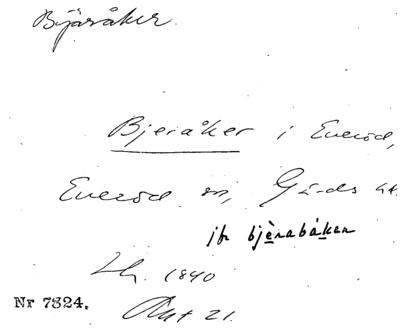 Bjäråker.
Bjeråker i Everöd,
Everöd sn, Gärds hd.
jfr bjèrabåker
Lh. 1840
Akt 21.
Nr 7324.